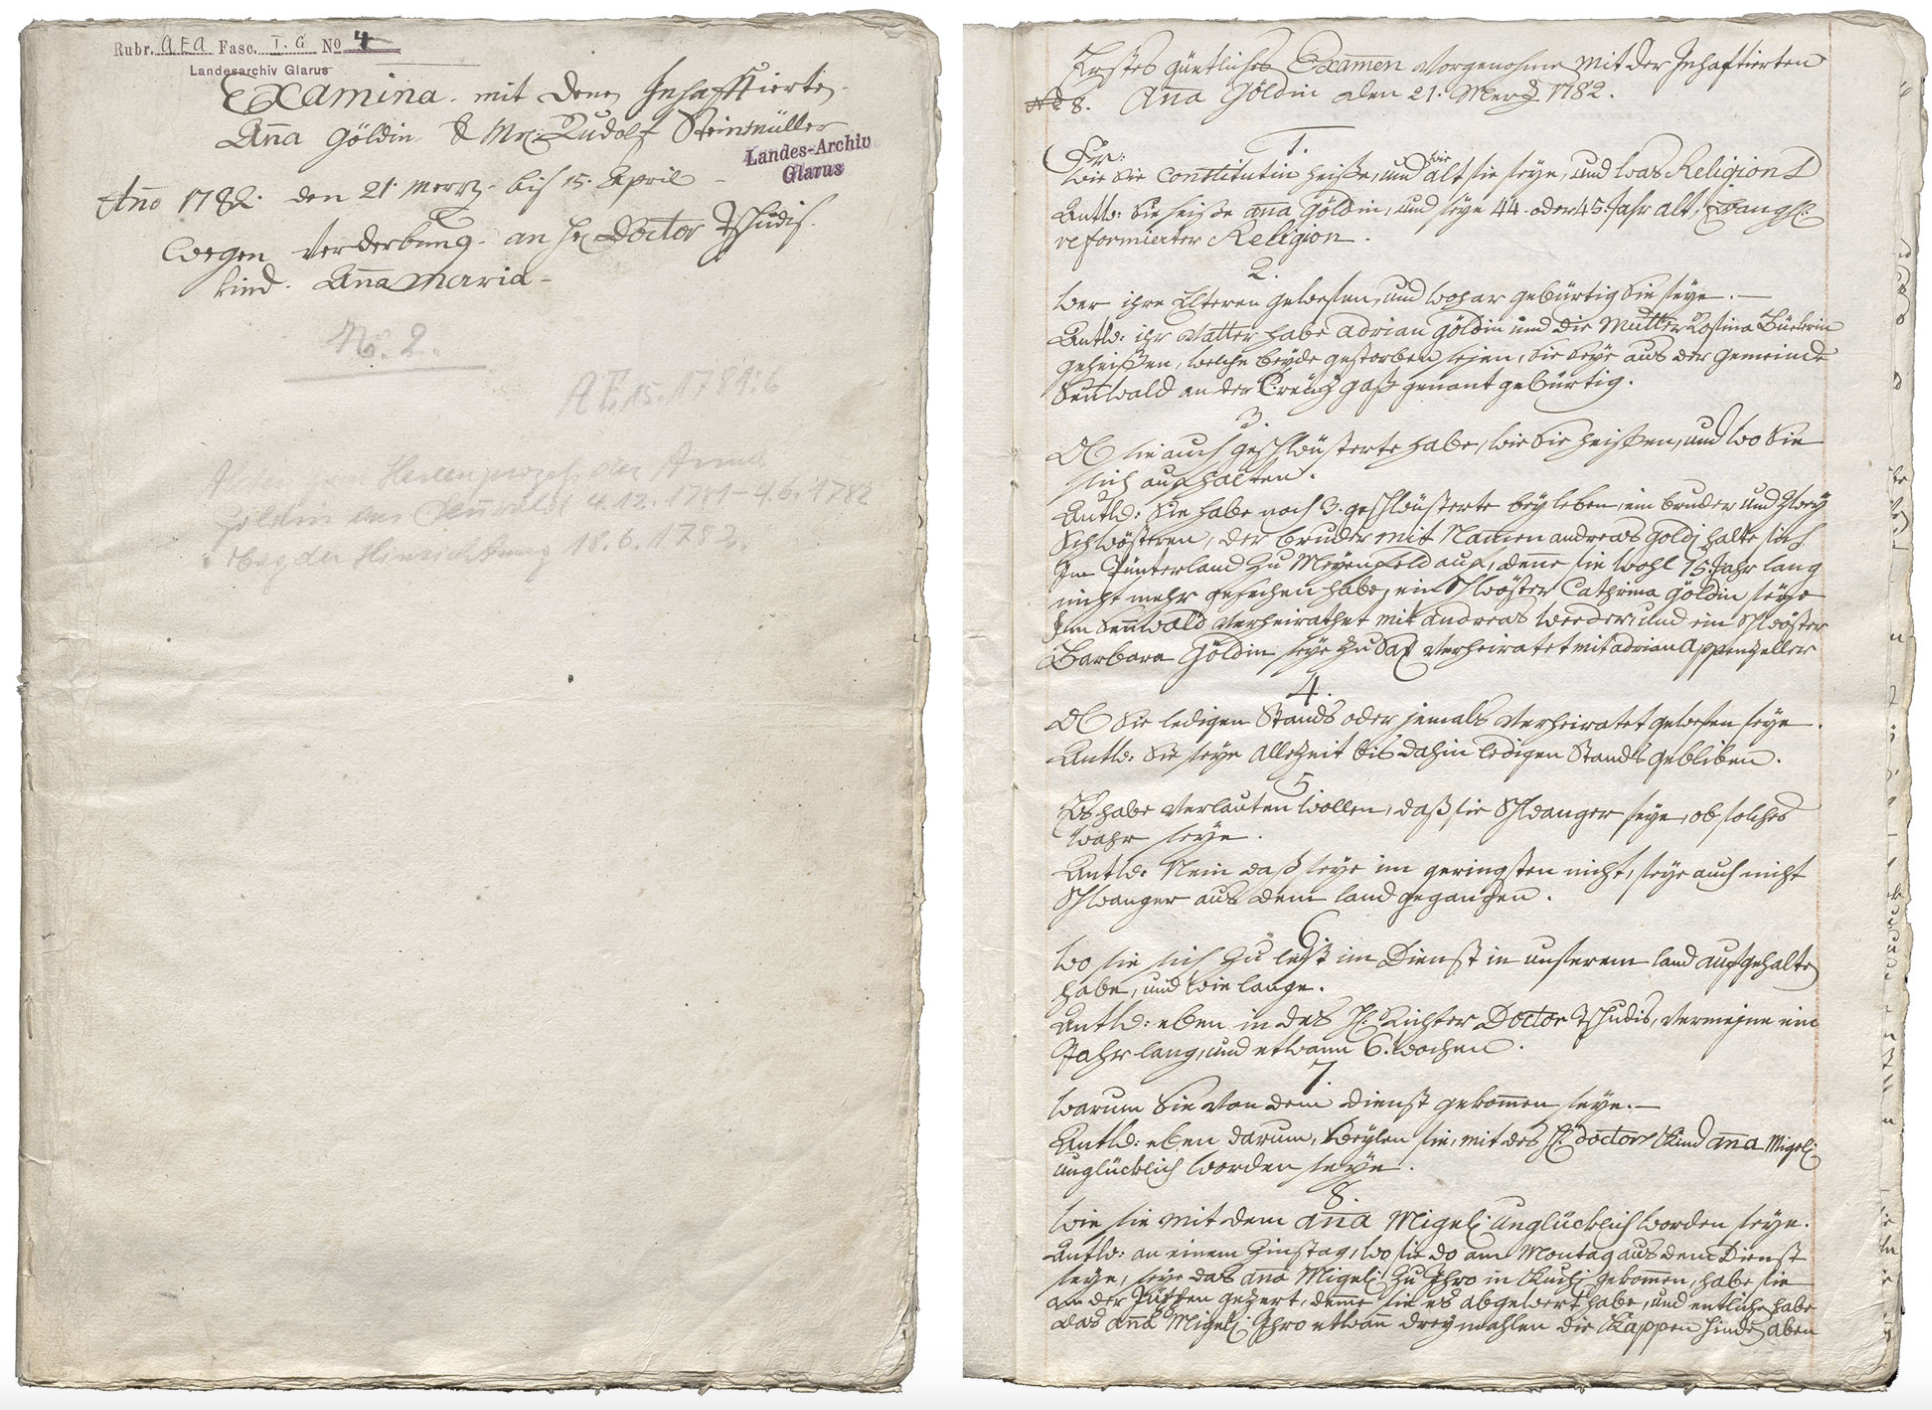 Rubr. A E A Fasc. I. G No 4
Landesarchiv Glarus
Examina mit denen Inhafftierten
Anna Göldin & Mr: Rudolf Steinmüller
Landes-Archiv
Glarus
Ano 1782. den 21. Mertz bis 15. Aprill
wegen Verderbung an Hr Doctor Tschudis
kind. Anna Maria
No. 2.
A E 15. 1781:6
Akten zum Hexenprozess der Anna
Göldin aus Sennwald 4.12.1781–4.6.1782
Tag der Hinrichtung 18.6.1782.
Erstes güetliches Examen vorgenohmen mit der Inhaftierten
No 8. Anna Göldin den 21. Mertz 1782.
1.
Fr:
wie die Constitutin heiße, und wie alt sie seye, und was Religion
Antw: Sie heiße Anna Göldin, und seye 44. oder 45. Jahr alt, Evangl:
reformierter Religion.
2.
Wer ihre Elteren gewesen, und wohar gebürtig Sie seye.
Antw: ihr Vatter habe Adrian Göldin und die Mutter Rosina Büelerin
geheißen, welche beyde gestorben sejen, Sie seye aus der Gemeinde
Senwald an der Creützgaß genant gebürtig.
3.
Ob sie auch geschwüsterte habe, wie Sie heißen, und wo Sie
sich aufhalten.
Antw: Sie habe noch 3. geschwüsterte bey leben, ein bruder und zwey
Schwösteren, der bruder mit Namen Andreas Göldj halte sich
Im Pünterland zu Meyenfeld auf, denne sie wohl 15. Jahr lang
nicht mehr gesechen habe, ein Schwöster Cathrina Göldin seye
Im Sennwald verheirathet mit Andreas und ein Schwöster
Barbara Göldin seye zu Sax verheiratet mit Adrian Appenzeller
4.
Ob Sie ledigen Stands oder jemals verheiratet gewesen seye.
Antw: Sie seye allezeit bis dahin ledigen Stands gebliben.
5
Es habe verlauten wollen, daß sie Schwanger seye, ob solches
wahr seye.
Antw: Nein daß seye im geringsten nicht, seye auch nicht
Schwanger aus dem land gegangen.
6.
Wo sie sich zu letzt im Dienst in unserem land aufgehalte
habe, und wie lange.
Antw: eben in des Hr. Richter Doctor Tschudis, vermejne ein
Jahr lang, und etwann 6. wochen.
7.
Warum Sie von dem Dienst gekommen seye.
Antw: eben darum, weylen sie, mit des Hr. Doctors Kind Anna Migeli
unglücklich worden seye.
8.
Wie sie mit dem Anna Migeli unglücklich worden seye.
Antw: an einem Zinstag, wo sie do am Montag aus dem Dienst
seye, seye das Anna Migeli zu Ihro in Kuchj gekommen, habe sie
an der Jüppen gezert, denne sie es abgewert habe, und entlich habe
das Anna Migeli Ihro etwan dreymahlen die Kappen hinde aben